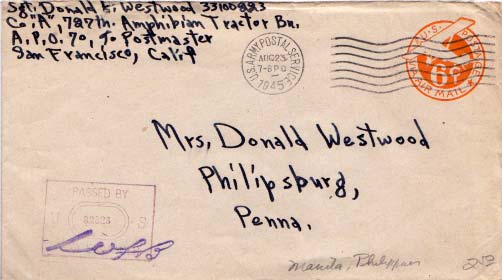 Sgt. Donald E. Westwood 33100823
Co. "A", 787th. Amphibian Tractor Bn.
A.P.O. 70, % Postmaster
San Francisco, Calif
U.S. ARMY POSTAL SERVICE
AUG 23
7-8 PD
1945
U.S. POSTAGE
6¢
VIA AIR MAIL
Mrs. Donald Westwood
Philipsburg,
Penna.
PASSED BY
U S
Manila, Philippines